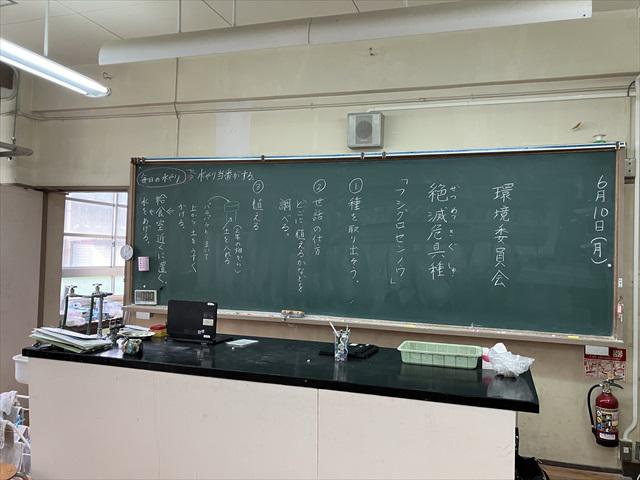 6月10日(月)
環境委員会
ぜつめつきぐしゅ
絶滅危具種
「フシグロセンノウ」
①種を取り出そう。
②世話の仕方
どこに植えるかなどを
調べる。
③植える
土を入れる
パラパラとまいて
上から土をうすく
かける。
給食室近くに置く
水をあげる。
毎日の水やり
水やり当番がする。